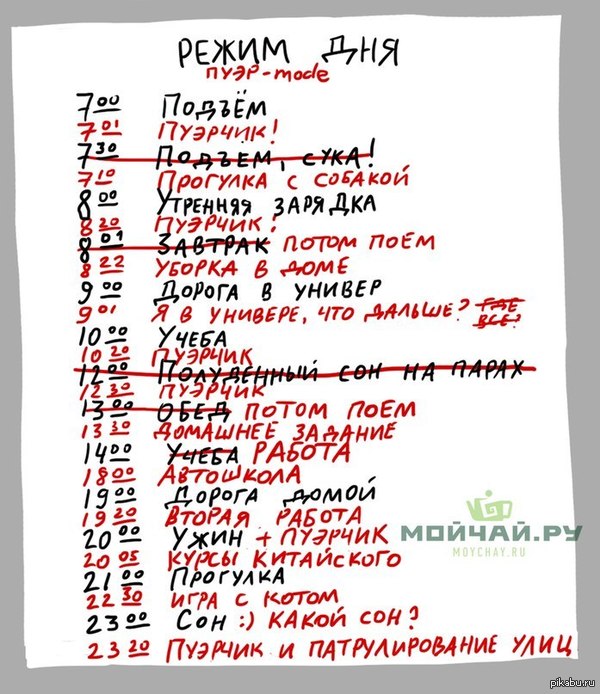 РЕЖИМ ДНЯ
ПУЭР-mode
7 00 ПОДЪЁМ
7 01 ПУЭРЧИК!
7 30 ПОДЪЁМ, СУКА!
7 10 ПРОГУЛКА С СОБАКОЙ
8 00 УТРЕННЯЯ ЗАРЯДКА
8 20 ПУЭРЧИК!
8 01 ЗАВТРАК ПОТОМ ПОЕМ
8 22 УБОРКА В ДОМЕ
9 00 ДОРОГА В УНИВЕР
9 01 Я В УНИВЕРЕ, ЧТО ДАЛЬШЕ? ГДЕ ВСЕ?
10 00 УЧЕБА
10 20 ПУЭРЧИК
12 00 ПОЛУДЕННЫЙ СОН НА ПАРАХ
12 30 ПУЭРЧИК
13 00 ОБЕД ПОТОМ ПОЕМ
13 30 ДОМАШНЕЕ ЗАДАНИЕ
14 00 УЧЕБА РАБОТА
18 00 АВТОШКОЛА
19 00 ДОРОГА ДОМОЙ
19 20 ВТОРАЯ РАБОТА
20 00 УЖИН + ПУЭРЧИК
20 05 КУРСЫ КИТАЙСКОГО
21 00 ПРОГУЛКА
22 30 ИГРА С КОТОМ
23 00 СОН :) КАКОЙ СОН?
23 20 ПУЭРЧИК И ПАТРУЛИРОВАНИЕ УЛИЦ
МОЙЧАЙ.РУ
MOYCHAY.RU
pikabu.ru